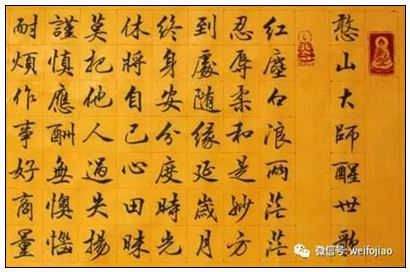 憨山大師醒世歌
紅塵白浪兩茫茫
忍辱柔和是妙方
到處随緣延歲月
終身安分度時光
休將自己心田昧
莫把他人過失揚
謹慎應酬無懊惱
耐煩作事好商量
微信号: weifojiao